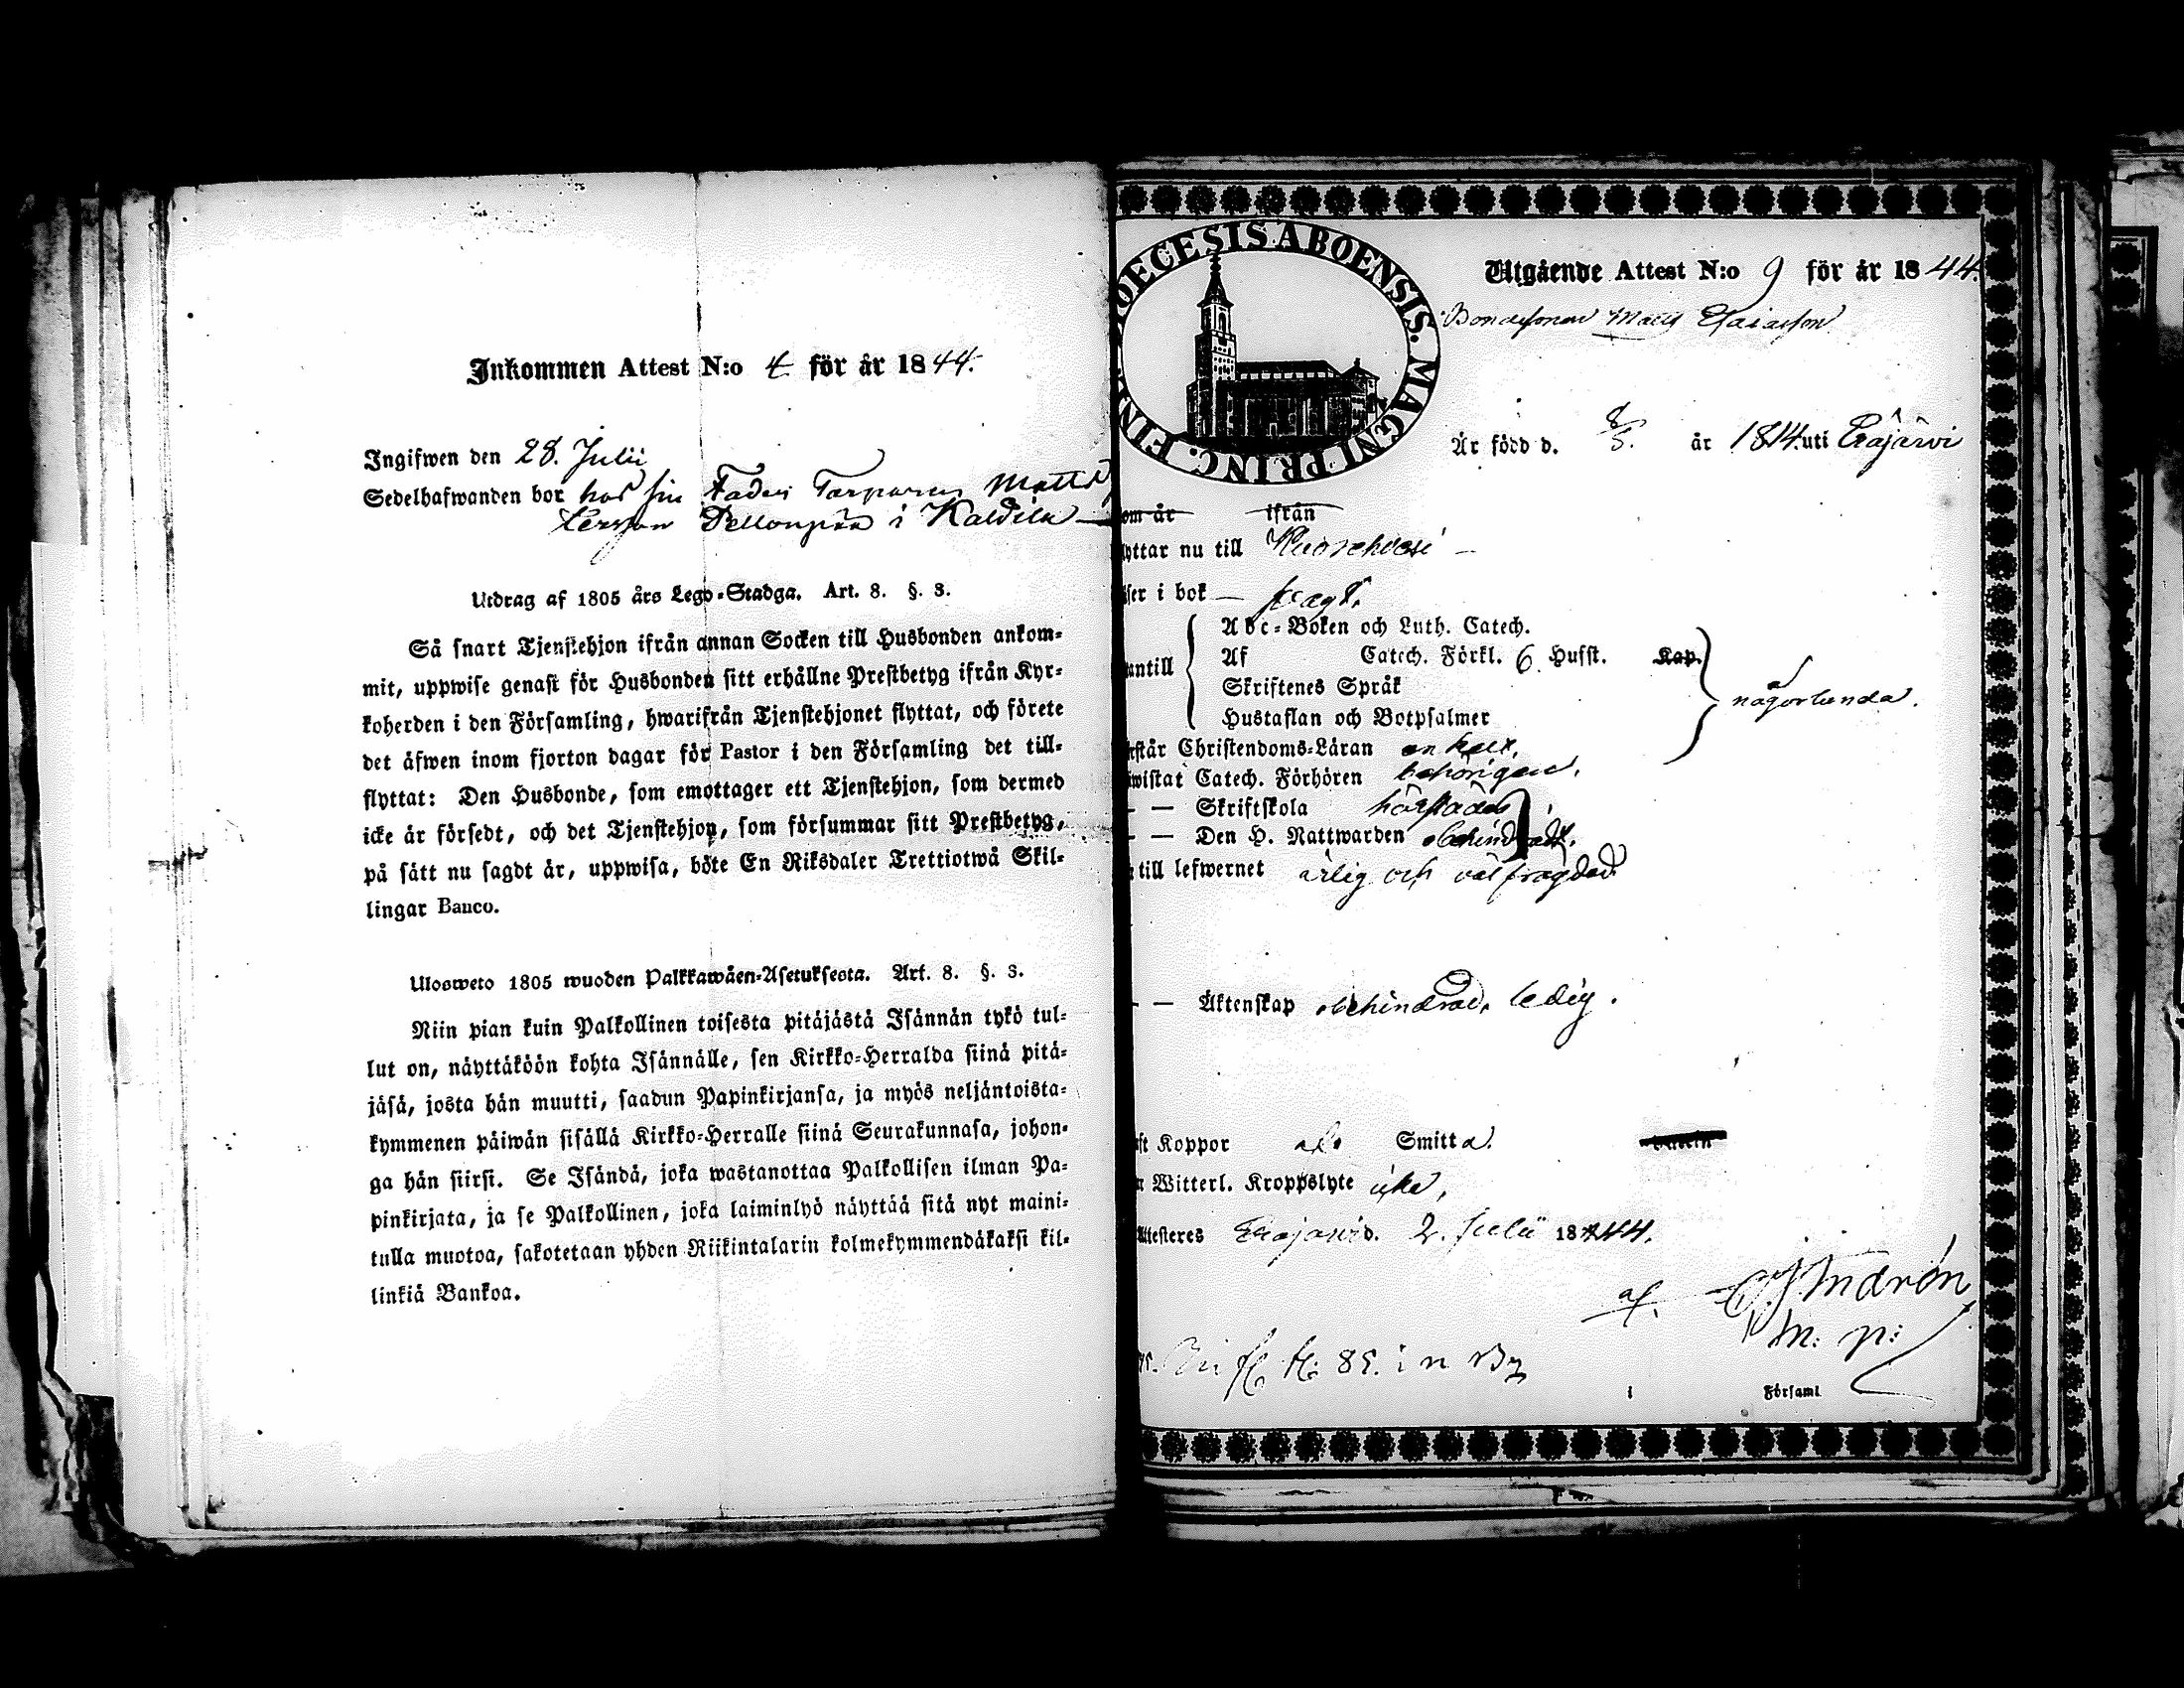 Inkommen Attest N:o 4 för år 1844.
Ingifwen den 28. Julii
Sedelhafwanden bor hos sin Fader Torparen Matts
i Kaldila
Utdrag af 1805 års Lego-Stadga. Art. 8. §. 3.
Så snart Tjenstehjon ifrån annan Socken till Husbonden ankom-
mit, uppwise genast för Husbonden sitt erhållne Prestbetyg ifrån Kyr-
koherden i den Församling, hwarifrån Tjenstehjonet flyttat, och förete
det äfwen inom fjorton dagar för Pastor i den Församling det till-
flyttat: Den Husbonde, som emottager ett Tjenstehjon, som dermed
icke är försedt, och det Tjenstehjon, som försummar sitt Prestbetyg,
på sätt nu sagdt är, uppwisa, böte En Riksdaler Trettiotwå Skil-
lingar Banco.
Ulosweto 1805 wuoden Palkkawäen-Asetuksesta. Art. 8. §. 3.
Niin pian kuin Palkollinen toisesta pitäjästä Isännän tykö tul-
lut on, näyttäköön kohta Isännälle, sen Kirkko-Herralda siinä pitä-
jäsä, josta hän muutti, saadun Papinkirjansa, ja myös neljäntoista-
kymmenen päiwän sisällä Kirkko-Herralle siinä Seurakunnasa, johon-
ga hän siirsi. Se Isändä, joka wastanottaa Palkollisen ilman Pa-
pinkirjata, ja se Palkollinen, joka laiminlyö näyttää sitä nyt maini-
tulla muotoa, sakotetaan yhden Riikintalarin kolmekymmendäkaksi kil-
linkiä Bankoa.
DIOECESIS ABOENSIS. MAGNI PRINC. FIN
Utgående Attest N:o 9 för år 1844.
Bondesonen Matts Esaiasson
Är född d. 8/5. år 1814. uti Eräjärvi
om är ifrån
lyttar nu till Kuorehvesi
äser i bok svagt.
Abc-Boken och Luth. Catech.
antill Af Catech. Förkl. 6 Hufst. Kap.
någorlunda.
Skriftenes Språk
Hustaflan och Botpsalmer
rstår Christendoms-Läran enkelt.
wistat Catech. Förhören behörigen.
— — Skriftskola
— — Den H. Nattwarden obehindradt.
till lefwernet ärlig och välfrägdad
— — Äktenskap obehindrad, ledig.
ft Koppor Smitta.
n Witterl. Kroppslyte icke,
Attesteres Eräjärvi d. 2. Julii 1844.
af.
m: p:
85. i n By
i Församl